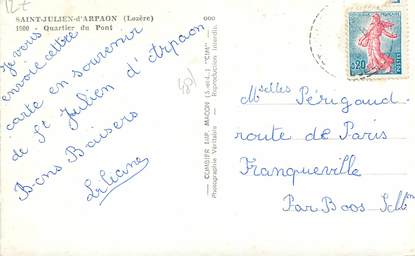 SAINT-JULIEN-d'ARPAON (Lozère)
1900 - Quartier du Pont
Je vous
envoie cette
carte en souvenir
de St Julien d'Arpaon
Bons Baisers
COMBIER IMP. MACON (S.-et-L.) "CIM"
Photographie Véritable - Reproduction Interdite
0,20
Mselles Périgaud
route de Paris
Franqueville
Par Boos